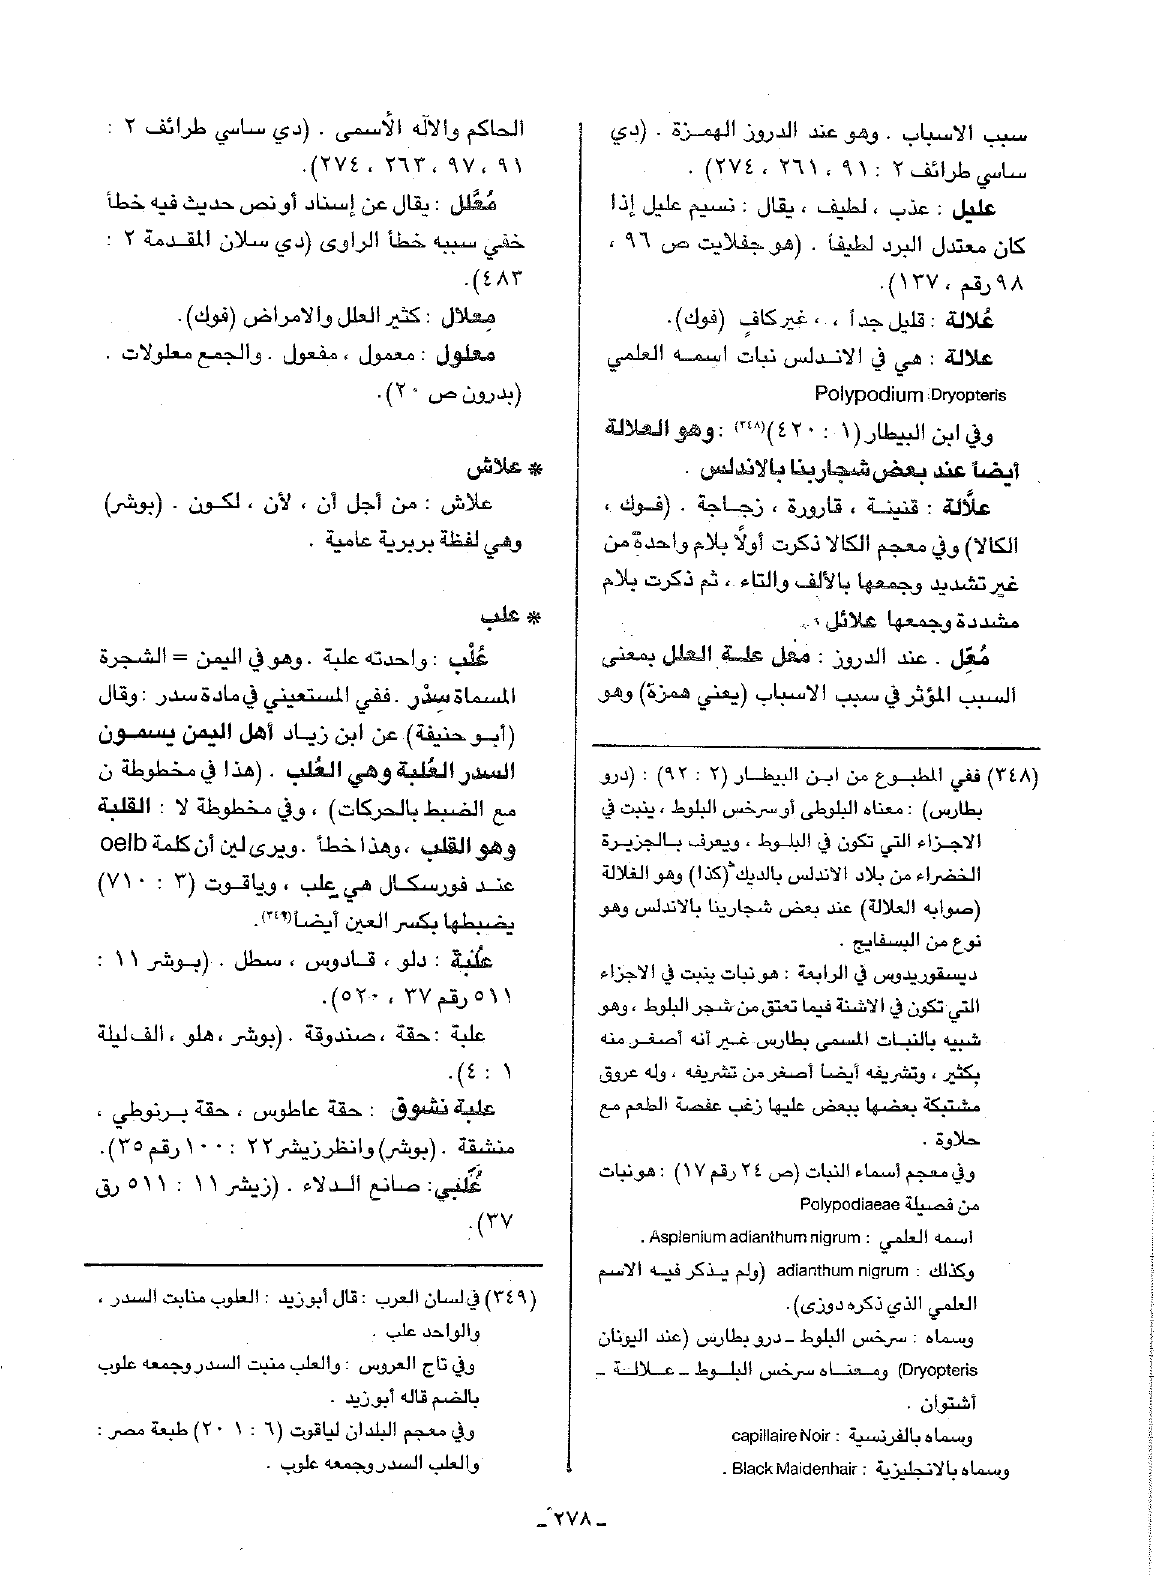 سبب الاسباب . وهو عند الدروز الهمزة . (دي
ساسي طرائف ٢ : ٩١ ، ٢٦١ ، ٢٧٤) .
عليل : عذب ، لطيف ، يقال : نسيم عليل إذا
كان معتدل البرد لطيفاً . (هوجفلايت ص ٩٦ ،
٩٨ رقم ، ١٣٧).
عُلالة : قليل جداً ، ، غير كافٍ (فوك).
علالة : هي في الاندلس نبات اسمه العلمي
Polypodium Dryopteris
وفي ابن البيطار (١ : ٤٢٠)(٣٤٨) : وهو العلالة
أيضاً عند بعض شجارينا بالاندلس .
علاَّلة : قنينة ، قارورة ، زجاجة . (فوك ،
الكالا) وفي معجم الكالا ذكرت أولاً بلام واحدة من
غير تشديد وجمعها بالألف والتاء ، ثم ذكرت بلام
مشددة وجمعها علائل .
مُعَّل . عند الدروز : معل علة العلل بمعنى
السبب المؤثر في سبب الاسباب (يعني همزة) وهو
(٣٤٨) ففي المطبوع من ابن البيطار (٢ : ٩٢) : (درو
بطارس) : معناه البلوطي أو سرخس البلوط ، ينبت في
الاجزاء التي تكون في البلوط ، ويعرف بالجزيرة
الخضراء من بلاد الاندلس بالديك (كذا) وهو الغلالة
(صوابه العلالة) عند بعض شجارينا بالاندلس وهو
نوع من البسفايج .
ديسقوريدوس في الرابعة : هو نبات ينبت في الاجزاء
التي تكون في الاشنة فيما تعتق من شجر البلوط ، وهو
شبيه بالنبات المسمى بطارس غير أنه أصغر منه
بكثير ، وتشريفه أيضاً أصغر من تشريفه ، وله عروق
مشتبكة بعضها ببعض عليها زغب عفصة الطعم مع
حلاوة .
وفي معجم أسماء النبات (ص ٢٤ رقم ١٧) : هو نبات
من فصيلة Polypodiaeae
اسمه العلمي : Asplenium adianthum nigrum .
وكذلك : adianthum nigrum (ولم يذكر فيه الاسم
العلمي الذي ذكره دوزي).
وسماه : سرخس البلوط ـ درو بطارس (عند اليونان
Dryopteris) ومعناه سرخس البلوط ـ علالة ـ
أشتوان .
وسماه بالفرنسية : capillaire Noir
وسماه بالانجليزية : Black Maidenhair .
الحاكم والآله الأسمى . (دي ساسي طرائف ٢ :
٩١ ، ٩٧ ، ٢٦٣ ، ٢٧٤).
مُعَّلل : يقال عن إسناد أو نص حديث فيه خطأ
خفي سببه خطأ الراوى (دي سلان المقدمة ٢ :
٤٨٣).
معلال : كثير العلل والامراض (فوك).
معلول : معمول ، مفعول . والجمع معلولات .
(بدرون ص ٢٠).
* علاش
علاش : من أجل أن ، لأن ، لكون . (بوشر)
وهي لفظة بربرية عامية .
* علب
عُلْب : واحدته علبة . وهو في اليمن = الشجرة
المسماة سِدْر . ففي المستعيني في مادة سدر : وقال
(أبو حنيفة) عن ابن زياد أهل اليمن يسمون
السدر العُلبة وهي العُلب . (هذا في مخطوطة ن
مع الضبط بالحركات) ، وفي مخطوطة لا : القلبة
وهو القلب ، وهذا خطأ . ويرى لين أن كلمة oelb
عند فورسكال هي عِلب ، وياقوت (٣ : ٧١٠)
يضبطها بكسر العين أيضاً(٣٤٩).
عُلْبَة : دلو ، قادوس ، سطل . (بوشر ١١ :
٥١١ رقم ٣٧ ، ٥٢٠).
علبة : حقة ، صندوقة . (بوشر ، هلو ، الف ليلة
١ : ٤).
علبة نشوق : حقة عاطوس ، حقة برنوطي ،
منشقة . (بوشر) وانظر زيشر ٢٢ : ١٠٠ رقم ٣٥).
عُلَبي : صانع الدلاء . (زيشر ١١ : ٥١١ رق
٣٧).
(٣٤٩) في لسان العرب : قال أبو زيد : العلوب منابت السدر ،
والواحد علب .
وفي تاج العروس : والعلب منبت السدر وجمعه علوب
بالضم قاله أبو زيد .
وفي معجم البلدان لياقوت (٦ : ٢٠١) طبعة مصر :
والعلب السدر وجمعه علوب .
ـ ٢٧٨ ـ